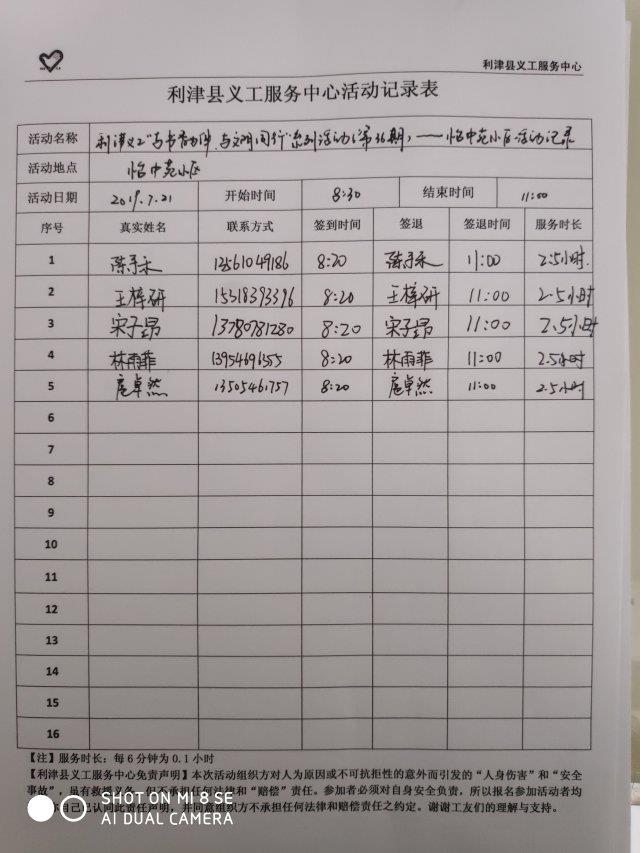 利津县义工服务中心
利津县义工服务中心活动记录表
活动名称 利津义工"与书香为伴、与文明同行"系列活动(第36期)——怡中苑小区活动记录
活动地点 怡中苑小区
活动日期 2019.7.21 开始时间 8:30 结束时间 11:00
序号 真实姓名 联系方式 签到时间 签退 签退时间 服务时长
1 13561049186 8:20 11:00 2.5小时.
2 王梓研 15318393396 8:20 王梓研 11:00 2.5小时
3 宋子昂 13780781280 8:20 宋子昂 11:00 2.5小时
4 林雨菲 13954696355 8:20 林雨菲 11:00 2.5小时
5 扈卓然 13505461757 8:20 扈卓然 11:00 2.5小时
6
7
8
9
10
11
12
13
14
15
16
【注】服务时长：每6分钟为0.1小时
【利津县义工服务中心免责声明】本次活动组织方对人为原因或不可抗拒性的意外而引发的"人身伤害"和"安全
事故"，虽有救援义务，但不承担任何法律和"赔偿"责任。参加者必须对自身安全负责，所以报名参加活动者均
自己已认同此责任声明，并同意组织方不承担任何法律和赔偿责任之约定。谢谢工友们的理解与支持。
SHOT ON MI 8 SE
AI DUAL CAMERA